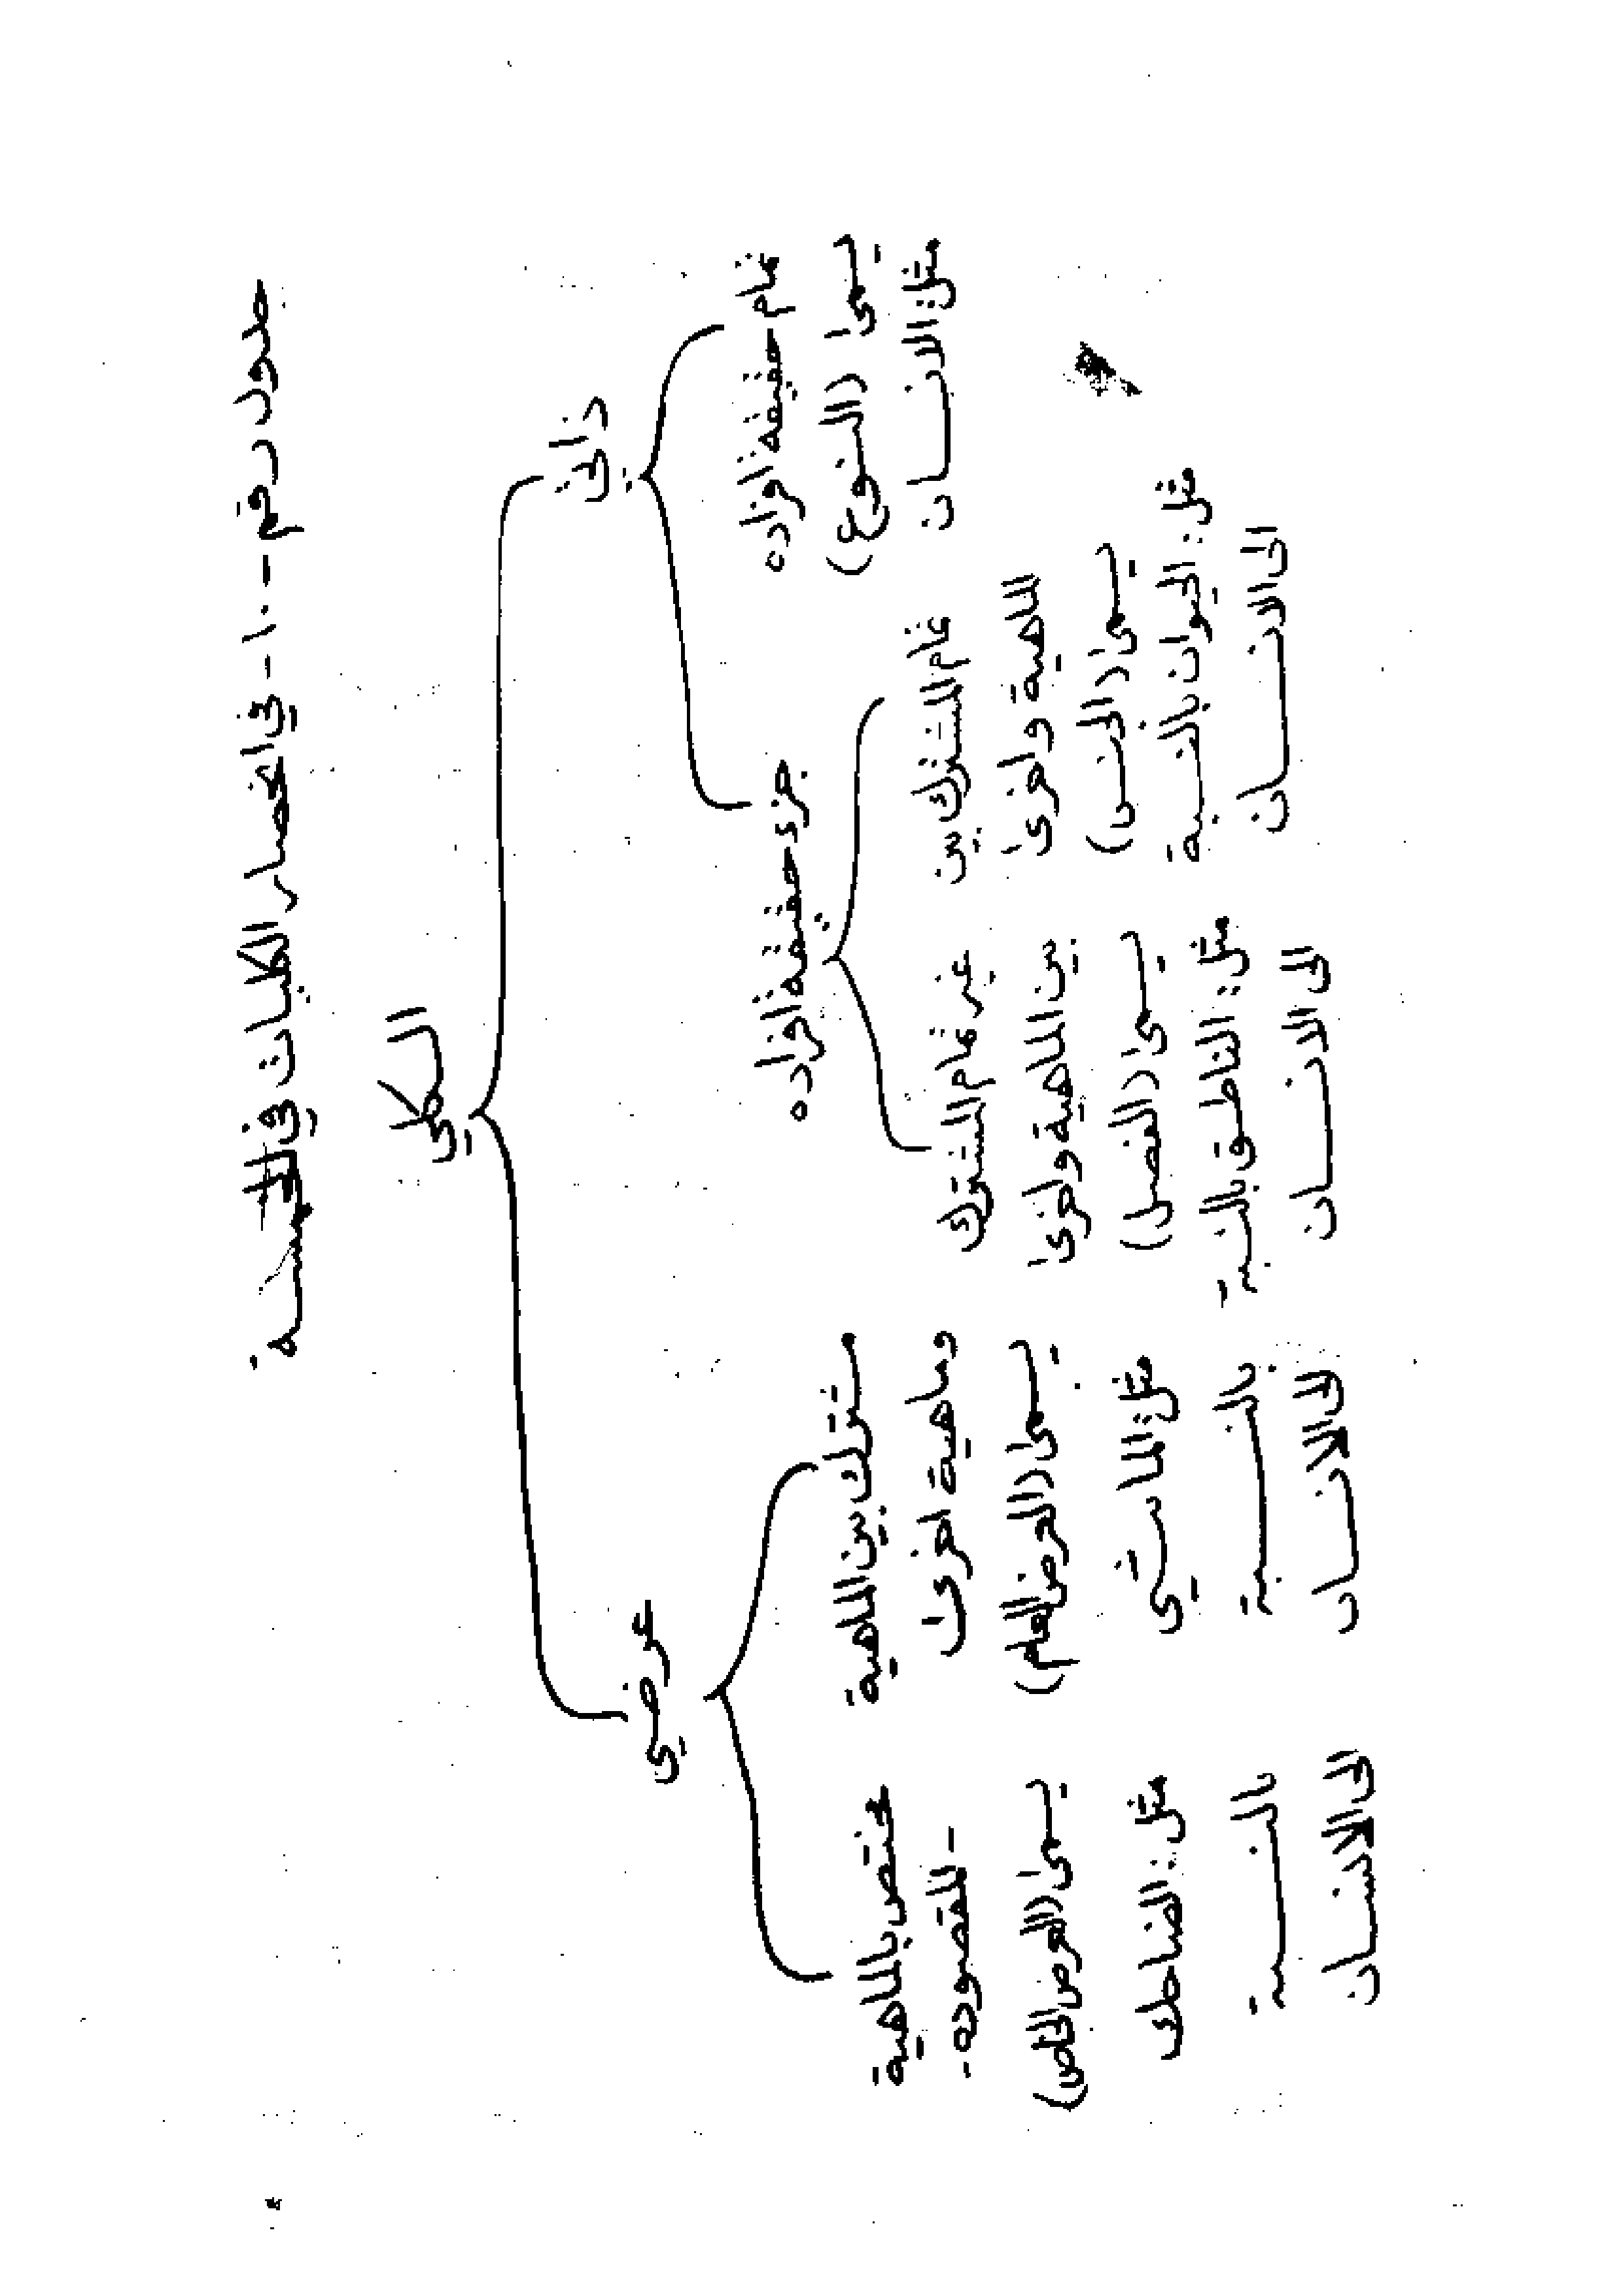 جدول رقم -١٠- في انحصار الكليات في الخمسة
الكلي
ذاتي
تمام حقيقة افراده
يسمى (النوع)
مثل: الانسان
جزء حقيقة افراده
تمام المشترك بين
الماهية واخرى
يسمى (الجنس)
مثل: الحيوان بالنسبة
الى الانسان
غير تمام المشترك
بين الماهية واخرى
يسمى (الفصل)
مثل: الناطق بالنسبة
الى الانسان
عرضي
مشترك بين الماهية
وماهية اخرى
يسمى (العرض العام)
مثل: الماشي
بالنسبة
الى الانسان
مختص بالماهية
- المقصوده -
يسمى (العرض الخاص)
مثل: الضاحك
بالنسبة
الى الانسان